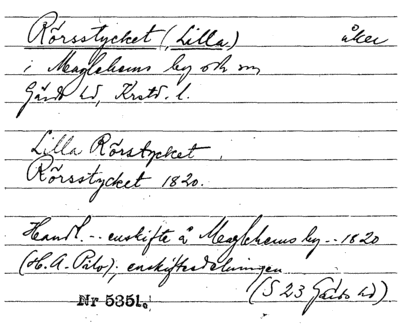 Rörsstycket (, Lilla,) åker
i Maglehems by och sn
Gärds hd, Krstd. l.
Lilla Rörstycket,
Rörsstycket 1820.
Handl. -- enskifte å Maglehems by -- 1820
(H. A. Palo); enskiftesdelningen
(S 23 Gärds hd)
Nr 5351.